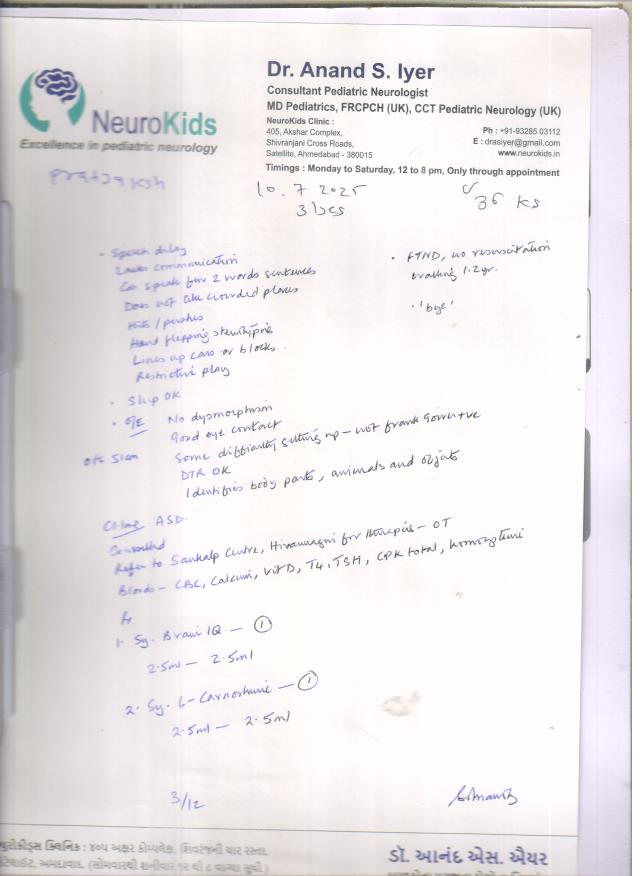 Dr. Anand S. Iyer
Consultant Pediatric Neurologist
MD Pediatrics, FRCPCH (UK), CCT Pediatric Neurology (UK)
NeuroKids
Excellence in pediatric neurology
NeuroKids Clinic :
405, Akshar Complex,
Shivranjani Cross Roads,
Satellite, Ahmedabad - 380015
Ph : +91-93285 03112
E : drasiyer@gmail.com
www.neurokids.in
Timings : Monday to Saturday, 12 to 8 pm, Only through appointment
10. 7 2025
- Speech delay
Lacks communication
Can speak few 2 words sentences
Does not like crowded places
Hits / pushes
Hand flapping
Lines up cars or blocks
Restrictive play
• FTND, no resuscitation
walking 1.2 yr.
• 'bye'
- Sleep OK
• O/E No dysmorphism
Good eye contact
Some difficulty getting up - not frank
DTR OK
Identifies body parts, animals and objects
ASD.
Counselled
Refer to Sankalp Centre, for therapies - OT
Bloods - CBC, Calcium, Vit D, T4, TSH, CPK total, homocysteine
1. Sy. Brain IQ - 1
2.5ml - 2.5ml
2. Sy. L-Carnosine - 1
2.5ml - 2.5ml
3/12
ક્લિનિક : ૪૦૫ અક્ષર કોમ્પલેક્ષ, શિવરંજની ચાર રસ્તા,
અમદાવાદ. (સોમવારથી શનીવાર ૧૨ થી ૮ વાગ્યા સુધી)
ડૉ. આનંદ એસ. ઐયર